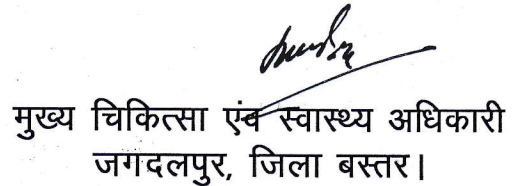 मुख्य चिकित्सा एंव स्वास्थ्य अधिकारी
जगदलपुर, जिला बस्तर।